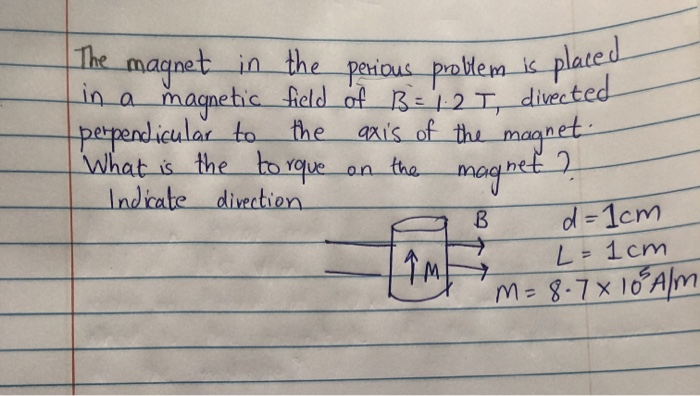 The magnet in the perious problem is placed
in a magnetic field of B = 1.2 T, divected
perpendicular to the axis of the magnet.
What is the torque on the magnet?
Indicate direction
B
d = 1cm
L = 1cm
↑M
M = 8.7 × 10⁵ A/m